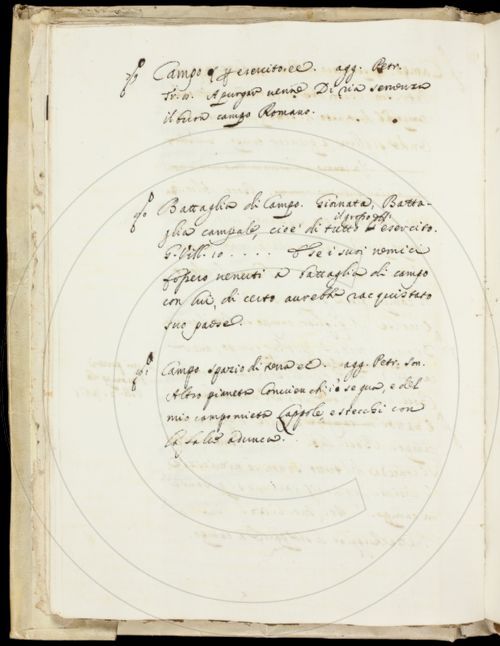 Campo p esercito. ec. agg. Petr.
Tr. A purgar venne Di ria semenza
il buon campo Romano.
Battaglia di Campo. Giornata, Batta-
il grosso dell'
glia campale, cioè di tutto esercito.
G. Vill. 10 . . . . . se i suoi nemici
fossero venuti a battaglia di campo
con lui, di certo avrebbe racquistato
suo paese.
Campo spazio di terra ec. agg. Petr. son.
Altro pianeta Convien ch'io segua, e del
mio campo mieta Lappole, e stecchi con
la falce adunca.